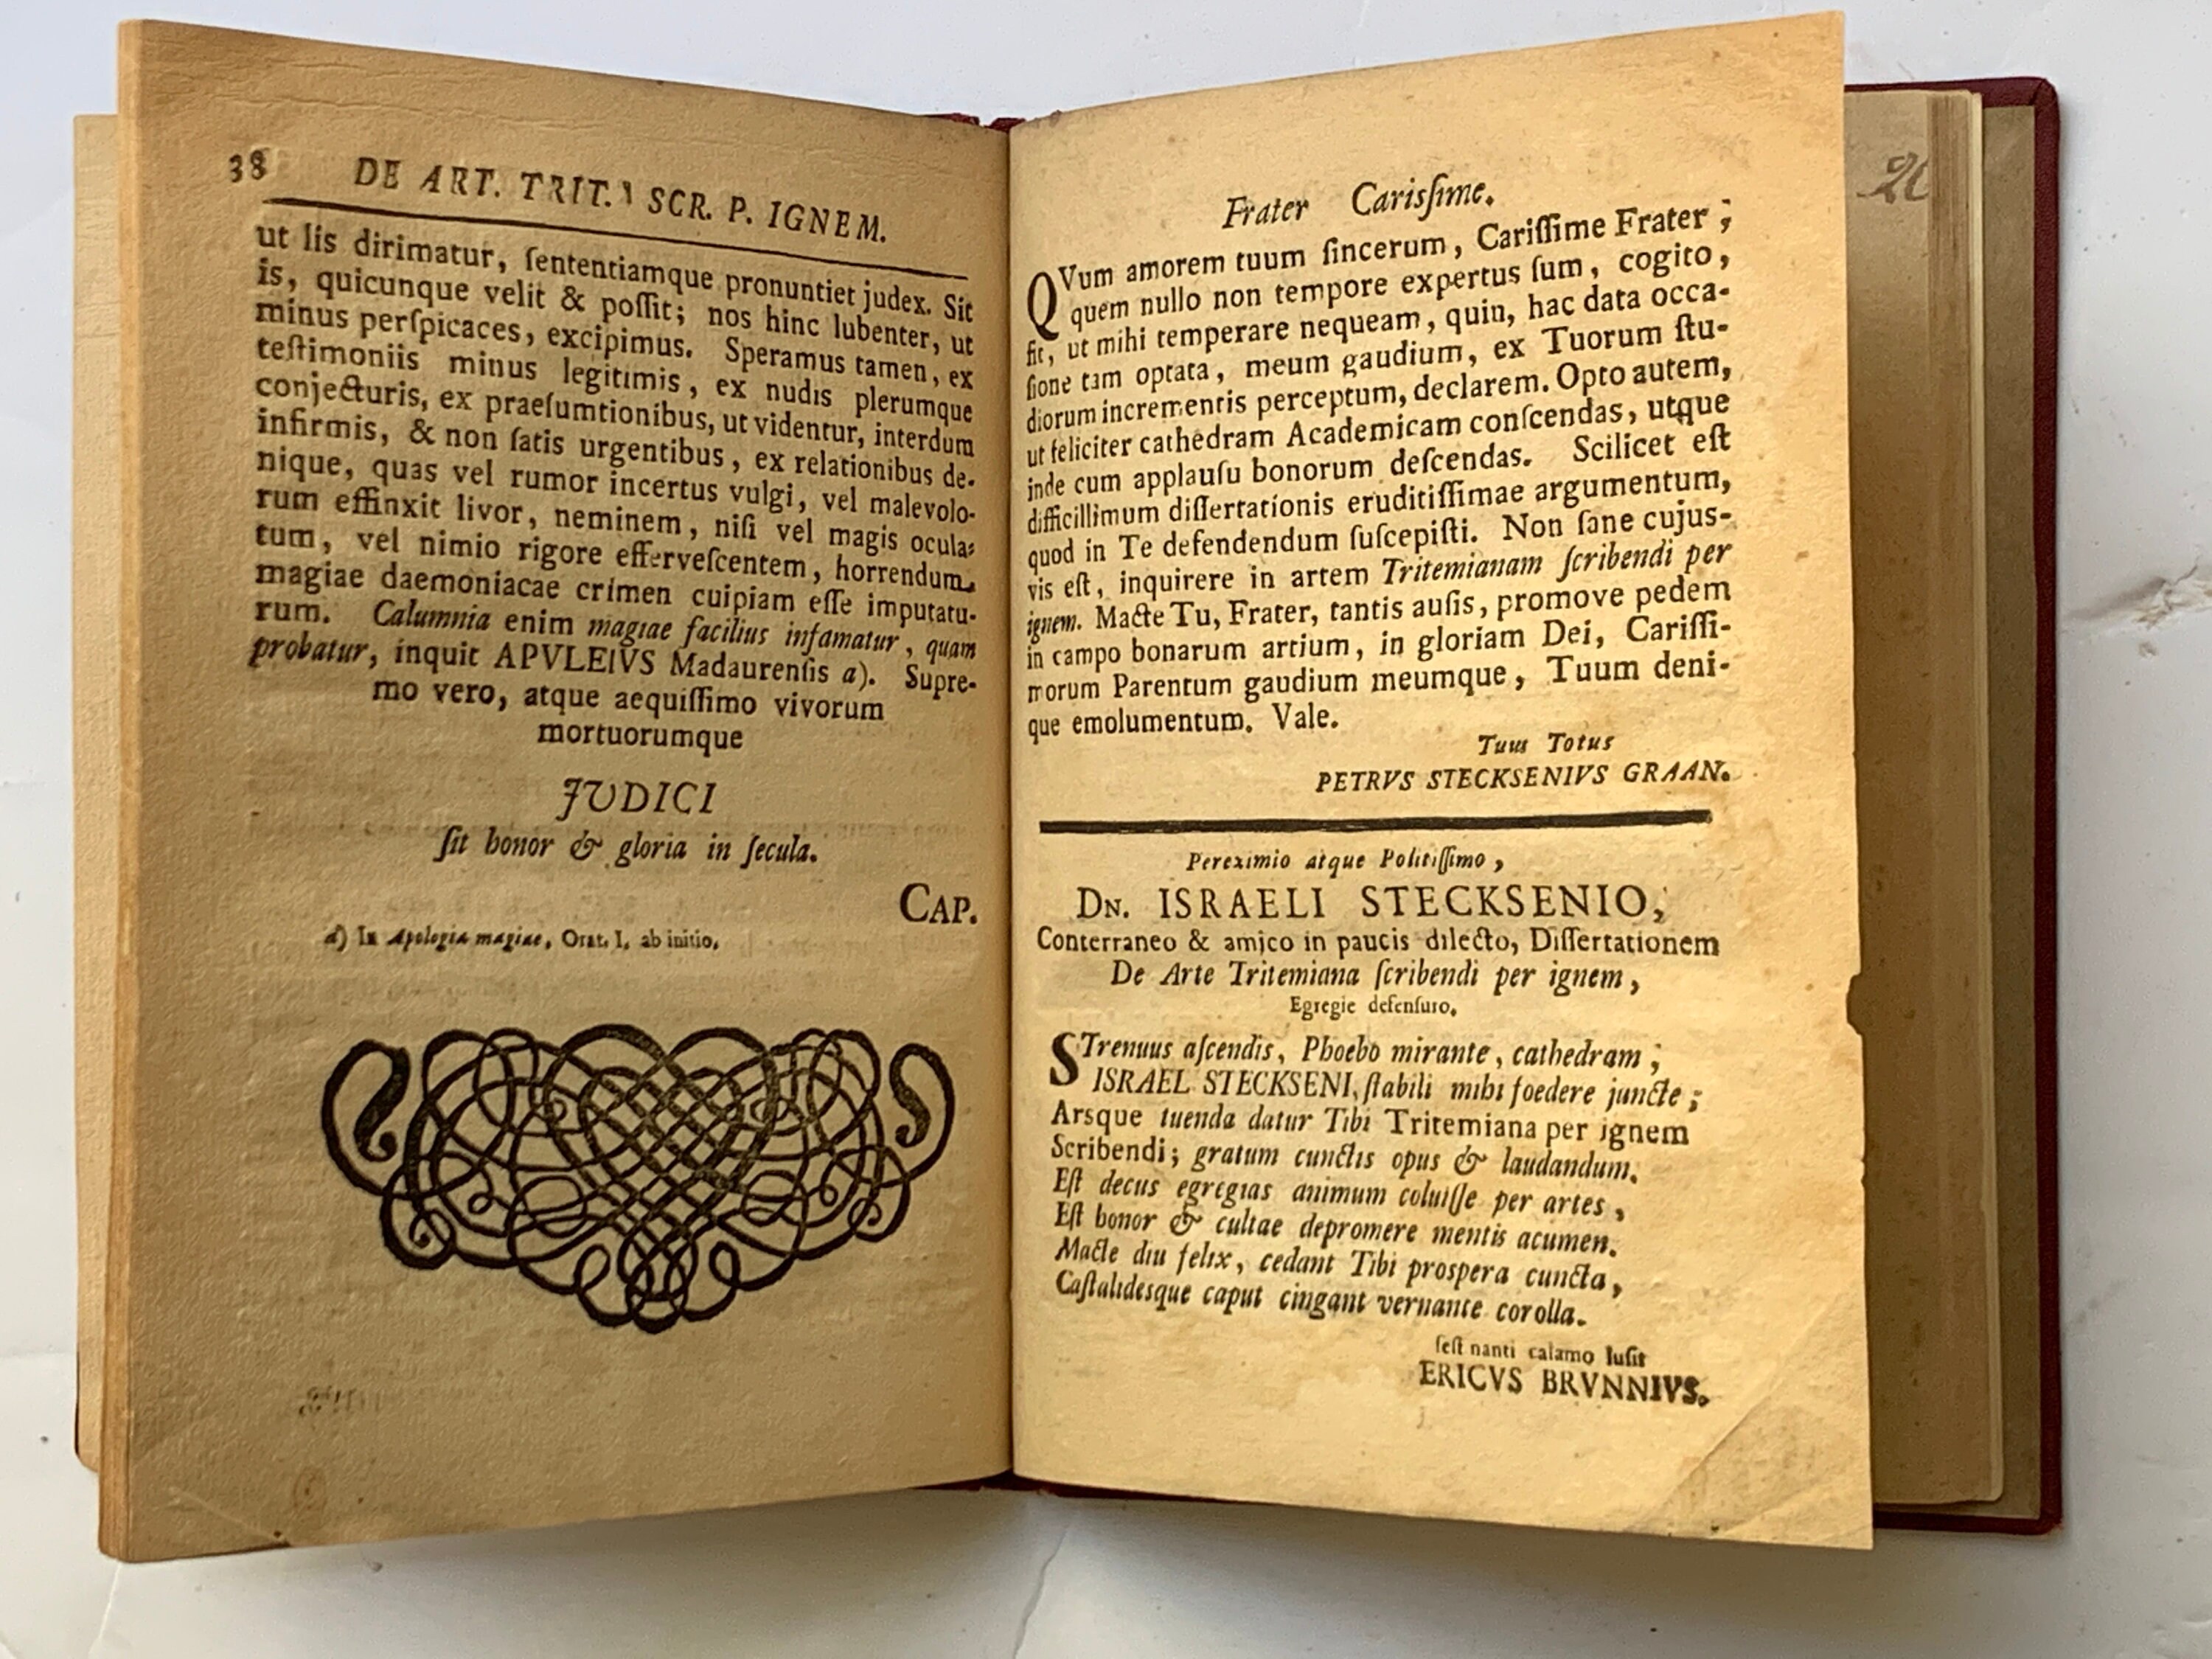 38 DE ART. TRIT. SCR. P. IGNEM.
ut lis dirimatur, ſententiamque pronuntiet judex. Sit
is, quicunque velit & poſſit; nos hinc lubenter, ut
minus perſpicaces, excipimus. Speramus tamen, ex
teſtimoniis minus legitimis, ex nudis plerumque
conjecturis, ex praeſumtionibus, ut videntur, interdum
infirmis, & non ſatis urgentibus, ex relationibus de-
nique, quas vel rumor incertus vulgi, vel malevolo-
rum effinxit livor, neminem, niſi vel magis ocula-
tum, vel nimio rigore efferveſcentem, horrendum
magiae daemoniacae crimen cuipiam eſſe imputatu-
rum. Calumnia enim magiae facilius infamatur, quam
probatur, inquit APVLEIVS Madaurenſis a). Supre-
mo vero, atque aequiſſimo vivorum
mortuorumque
JUDICI
ſit honor & gloria in ſecula.
CAP.
a) In Apologia magiae, Orat. I, ab initio.
Frater Carisſime.
QVum amorem tuum ſincerum, Cariſſime Frater;
quem nullo non tempore expertus ſum, cogito,
fit, ut mihi temperare nequeam, quin, hac data occa-
ſione tam optata, meum gaudium, ex Tuorum ſtu-
diorum incrementis perceptum, declarem. Opto autem,
ut feliciter cathedram Academicam conſcendas, utque
inde cum applauſu bonorum deſcendas. Scilicet eſt
difficillimum diſſertationis eruditiſſimae argumentum,
quod in Te defendendum ſuſcepiſti. Non ſane cujus-
vis eſt, inquirere in artem Tritemianam ſcribendi per
ignem. Macte Tu, Frater, tantis auſis, promove pedem
in campo bonarum artium, in gloriam Dei, Cariſſi-
morum Parentum gaudium meumque, Tuum deni-
que emolumentum. Vale.
Tuus Totus
PETRVS STECKSENIVS GRAAN.
Pereximio atque Politiſſimo,
DN. ISRAELI STECKSENIO,
Conterraneo & amico in paucis dilecto, Diſſertationem
De Arte Tritemiana ſcribendi per ignem,
Egregie defenſuro.
STrenuus aſcendis, Phoebo mirante, cathedram;
ISRAEL STECKSENI, ſtabili mihi foedere juncte;
Arsque tuenda datur Tibi Tritemiana per ignem
Scribendi; gratum cunctis opus & laudandum.
Eſt decus egregias animum coluiſſe per artes,
Eſt honor & cultae depromere mentis acumen.
Macte diu felix, cedant Tibi proſpera cuncta,
Caſtalidesque caput cingant vernante corolla.
feſtinanti calamo luſit
ERICVS BRVNNIVS.